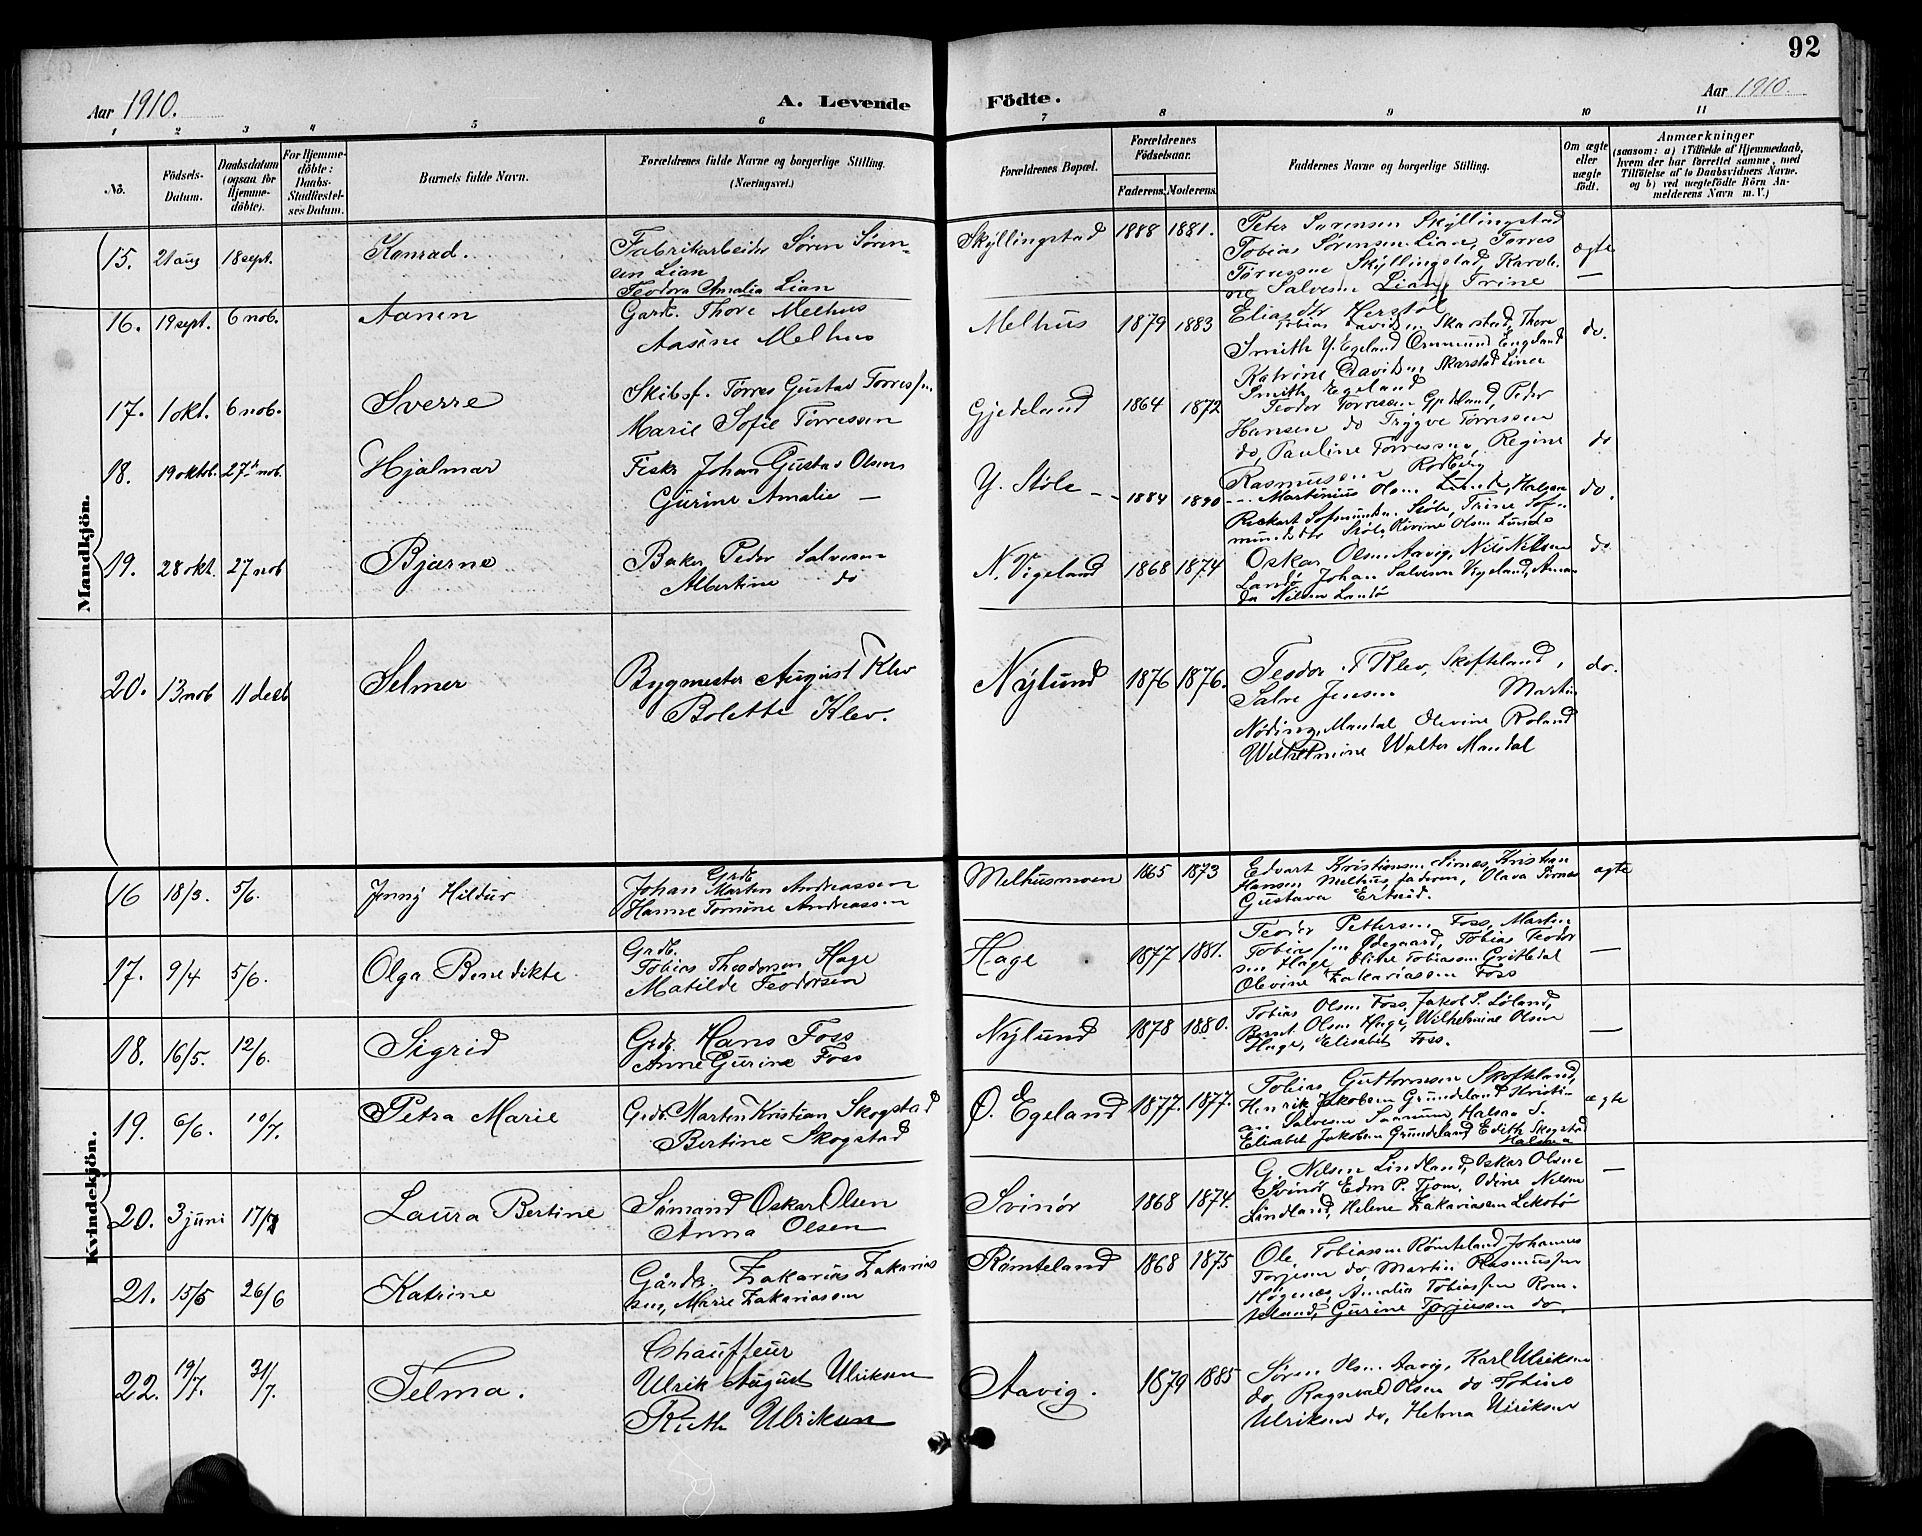 92
Aar 1910.
A. Levende Födte.
Aar 1910.
1 2 3 4 5 6 7 8 9 10 11
No.
Födsels-Datum.
Daabsdatum (ogsaa for Hjemme-döbte).
For Hjemme-döbte: Daabs-Stadfæstel-ses Datum.
Barnets fulde Navn.
Forældrenes fulde Navne og borgerlige Stilling. (Næringsvei.)
Forældrenes Bopæl.
Forældrenes Födselsaar.
Faderens. Moderens.
Faddernes Navne og borgerlige Stilling.
Om ægte eller uægte födt.
Anmærkninger
(saasom: a) i Tilfælde af Hjemmedaab,
hvem der har forrettet samme, med
Tilföielse af to Daabsvidners Navne,
og b) ved uægtefödte Börn An-
melderens Navn m. V.)
Mandkjön.
15. 21 aug 18 sept. Konrad. Fabrikarbeider Sören Sören-
sen Lian
Teodora Amalia Lian
Skyllingstad 1888 1881.
Peter Sørensen Skyllingstad
Tobias Sörensen Lian, Tørres
Tørressne Skyllingstad, Karoli-
ne Salvesen Lian, Trine
Eliasdtr Herstøl
ægte
16. 19 sept. 6 nob. Aanen Gardb. Thore Melhus
Aasine Melhus
Melhus 1879 1883
Tobias Davidsn Skarstad, Thore
Smith Y. Egeland Ommund Engeland
Katrine Davidsn Skarstad Line
Smith, Egeland
do.
17. 1 okt. 6 nob. Sverre Skibsf. Törres Gustav Torressen
Marie Sofie Törressen
Gjedeland 1864 1872
Teodor Torresen Gjedeland, Peder
Hansen do Trygve Tørressen
do, Pauline Tørressen, Regine
Rasmussen Rodberg
do
18. 19 oktob. 27de nob. Hjalmar Fisk. Johan Gustav Olsen
Gurine Amalie —
Y. Støle 1884 1890
Martinius Olsen Lunde, Halvor
Rickart Sofmundsn Støle, Trine Sof-
munddtr Støle, Olevine Olsen Lunde
do.
19. 28 okt. 27 nob Bjarne Baker Peder Salvesen
Albertine do
N. Vigeland 1868 1874
Oskar Olsen Aavig, Nils Nilsen
Landö, Johan Salvesen Vigeland, Aman-
da Nilsen Landö
do
20. 13 nob 11 decb Selmer Bygmester August T Klev
Bolette Klev.
Nylund 1876 1876.
Teodor T Klev, Skofteland,
Salve Jensen Martin
Nöding, Mandal Olevine Roland
Wilhelmine Walter Mandal
do.
Kvindekjön.
16 18/3 5/6. Jenny Hildur Grdb.
Johan Martin Andreassen
Hanne Tomine Andreassen
Melhusmoen 1865 1873
Edvart Kristiansen Sirnes, Kristian
Hansen Melhus, faderen, Olava Sirnes
Gustava Ertseid.
ægte
17. 9/4 5/6. Olga Benedikte Grdb.
Tobias Theodorsen Hage
Matilde Teodorsen
Hage 1877 1881.
Teodor Pettersen Foss, Martin
Tobiassen Ødegaard, Tobias Teodor
sen Hage Oline Tobiassen Gritledal
Olevine Zakariassen Foss
—
18. 16/5. 12/6. Sigrid Grdb Hans Foss
Anne Gurine Foss
Nylund 1878 1880.
Tobias Olsen Foss, Jakob S. Löland,
Bernt Olsen Hage, Wilhelmine Olsen
Hage, Elisabet Foss.
—
19. 6/6. 10/7. Petra Marie Grdb. Martin Kristian Skogstad
Bertine Skogstad
Ö. Egeland 1877 1877.
Tobias Guttormsen Skofteland,
Henrik Jakobsen Grundeland Kristi-
an Salvesen Sanum, Halsaa S.
Elisabet Jakobsen Grundeland Edith Skogstad
Halsaa
ægte
20. 3 juni 17/7 Laura Bertine Sömand Oskar Olsen
Anna Olsen
Svinör 1868 1874.
G. Nilsen Lindland, Oskar Olsen
Svinör, Edm P. Tjom, Odine Nilsen
Lindland, Helene Zakariassen Lekebö
—
21. 15/5 26/6 Katrine Gårdb. Zakarias Zakarias
sen, Marie Zakariassen
Rømteland 1868 1875
Ole Tobiassen Rømteland, Johannes
Torjusen do, Martin Rasmussen
Høgenes, Amalia Tobiassen Röm-
teland, Gurine Torjussen do,
22. 19/7. 31/7. Telma. Chauffeur
Ulrik August Ulriksen
Ruth Ulriksen
Aavig. 1879 1885
Sören Olsen Aavig, Karl Ulriksen
do, Ragnvald Olsen do Tobine
Ulriksen do, Helma Ulriksen